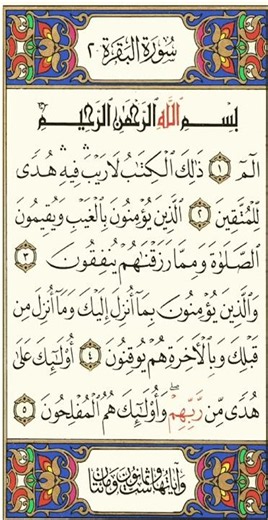 سُورَةُ البَقَرَةِ ٢
بِسْمِ اللَّهِ الرَّحْمَٰنِ الرَّحِيمِ
الٓمٓ ١ ذَٰلِكَ الْكِتَٰبُ لَا رَيْبَ ۛ فِيهِ ۛ هُدًى
لِّلْمُتَّقِينَ ٢ الَّذِينَ يُؤْمِنُونَ بِالْغَيْبِ وَيُقِيمُونَ
الصَّلَوٰةَ وَمِمَّا رَزَقْنَٰهُمْ يُنفِقُونَ ٣
وَالَّذِينَ يُؤْمِنُونَ بِمَا أُنزِلَ إِلَيْكَ وَمَا أُنزِلَ مِن
قَبْلِكَ وَبِالْآخِرَةِ هُمْ يُوقِنُونَ ٤ أُو۟لَٰٓئِكَ عَلَىٰ
هُدًى مِّن رَّبِّهِمْ ۖ وَأُو۟لَٰٓئِكَ هُمُ الْمُفْلِحُونَ ٥
وَآيَاتُهَا سِتٌّ وَثَمَانُونَ وَمِئَتَانِ